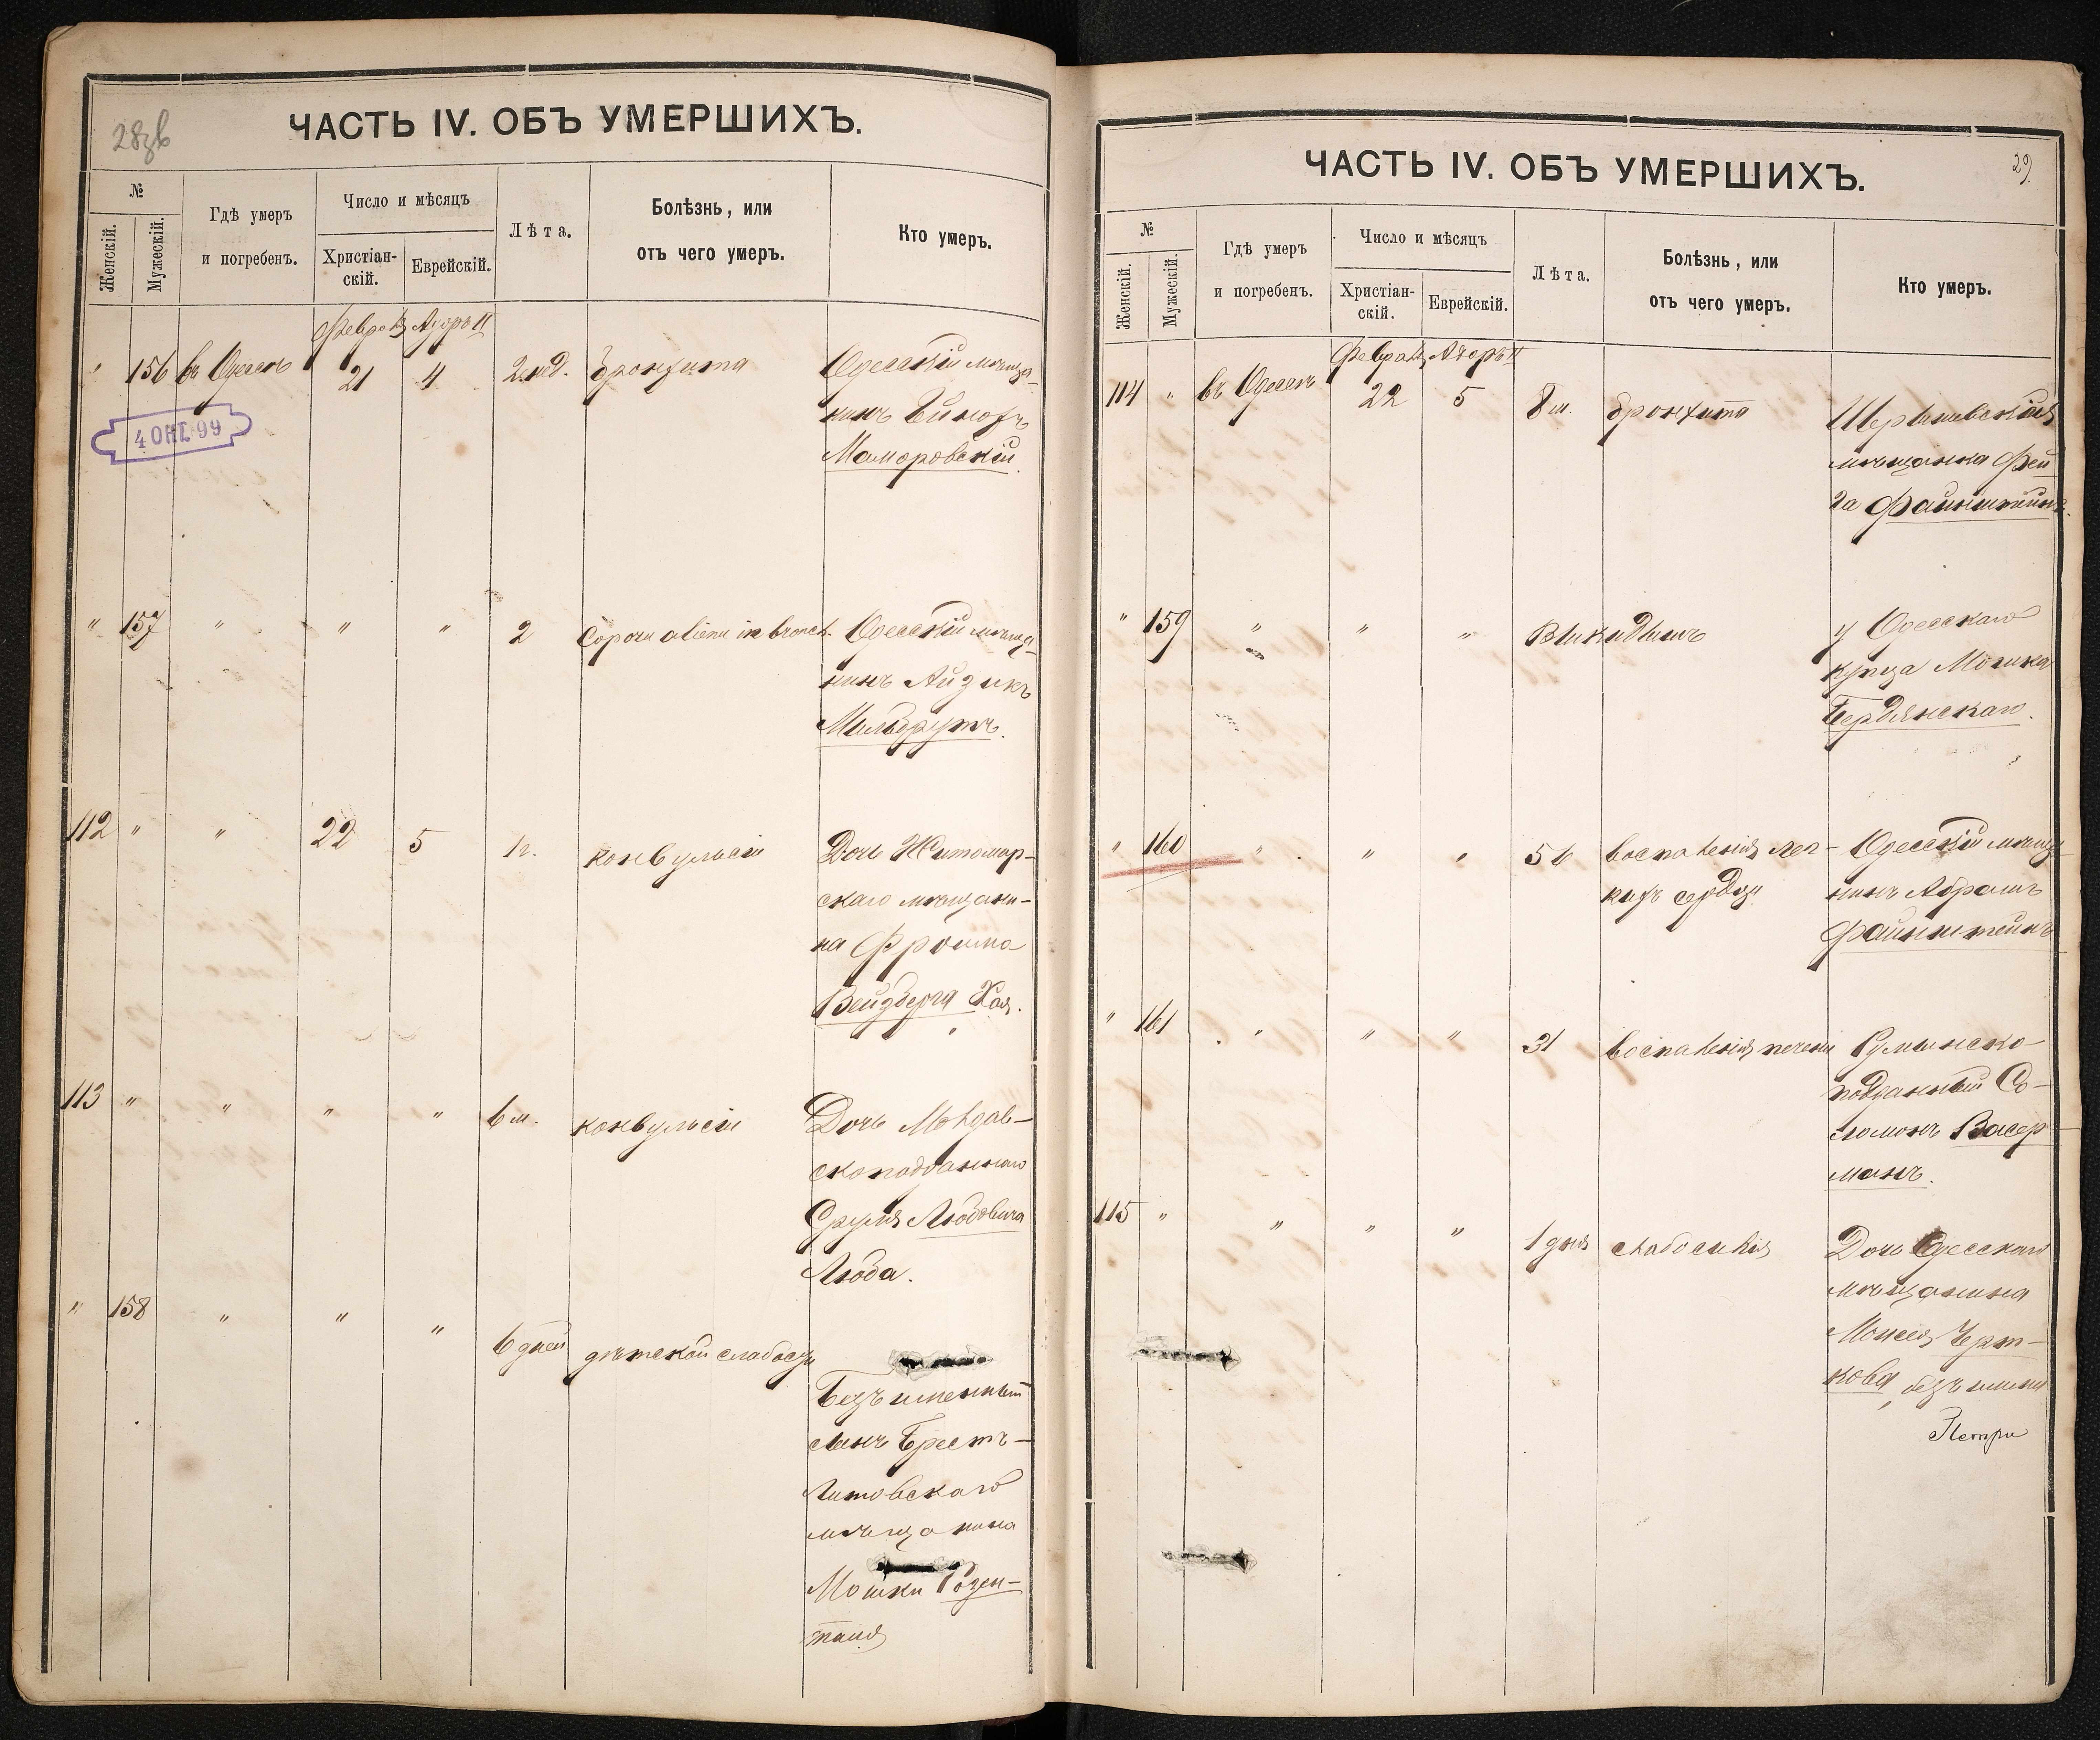 28об
ЧАСТЬ IV. ОБЪ УМЕРШИХЪ.
№
Женскій.
Мужескій.
Гдѣ умеръ
и погребенъ.
Число и мѣсяцъ
Христіан-
скій.
Еврейскій.
Лѣта.
Болѣзнь, или
отъ чего умеръ.
Кто умеръ.
" 156 въ Одессѣ 21 4 2 нед. бронхита Одесскій мѣща-
нинъ
Маморовскій.
4 ОКТ. 99
" 157 " " " 2 Corpora aliena in bronch. Одесскій мѣща-
нинъ Айзикъ
Мильбрутъ.
112 " " 22 5 1 г. конвульсіи Дочь Житомир-
скаго мѣщани-
на Фроима
Вейзберга Хая.
113 " " " " 6 м. конвульсіи Дочь Молдав-
скоподданнаго
Сруля Любовича
Люба.
" 158 " " " 6 дней дѣтской слабости
Безъименный
сынъ Брестъ-
Литовскаго
мѣщанина
Мошки Розен-
таля
29
ЧАСТЬ IV. ОБЪ УМЕРШИХЪ.
№
Женскій.
Мужескій.
Гдѣ умеръ
и погребенъ.
Число и мѣсяцъ
Христіан-
скій.
Еврейскій.
Лѣта.
Болѣзнь, или
отъ чего умеръ.
Кто умеръ.
114 " въ Одессѣ 22 5 8 м. бронхита
мѣщанка Фей
га Файнштейнъ.
" 159 " " " Выкидышъ у Одесскаго
купца Мошка
Бердянскаго.
" 160 " " " воспаленія лег- Одесскій мѣща
кихъ сердца нинъ Абрамъ
Файнштейнъ
" 161 " " " 31 воспаленія печени Румынско
подданный Со-
ломонъ Васер
манъ.
115 " " " " 1 дня слабосилія Дочь Одесскаго
мѣщанина
Моисея Черт-
кова, безъ имени